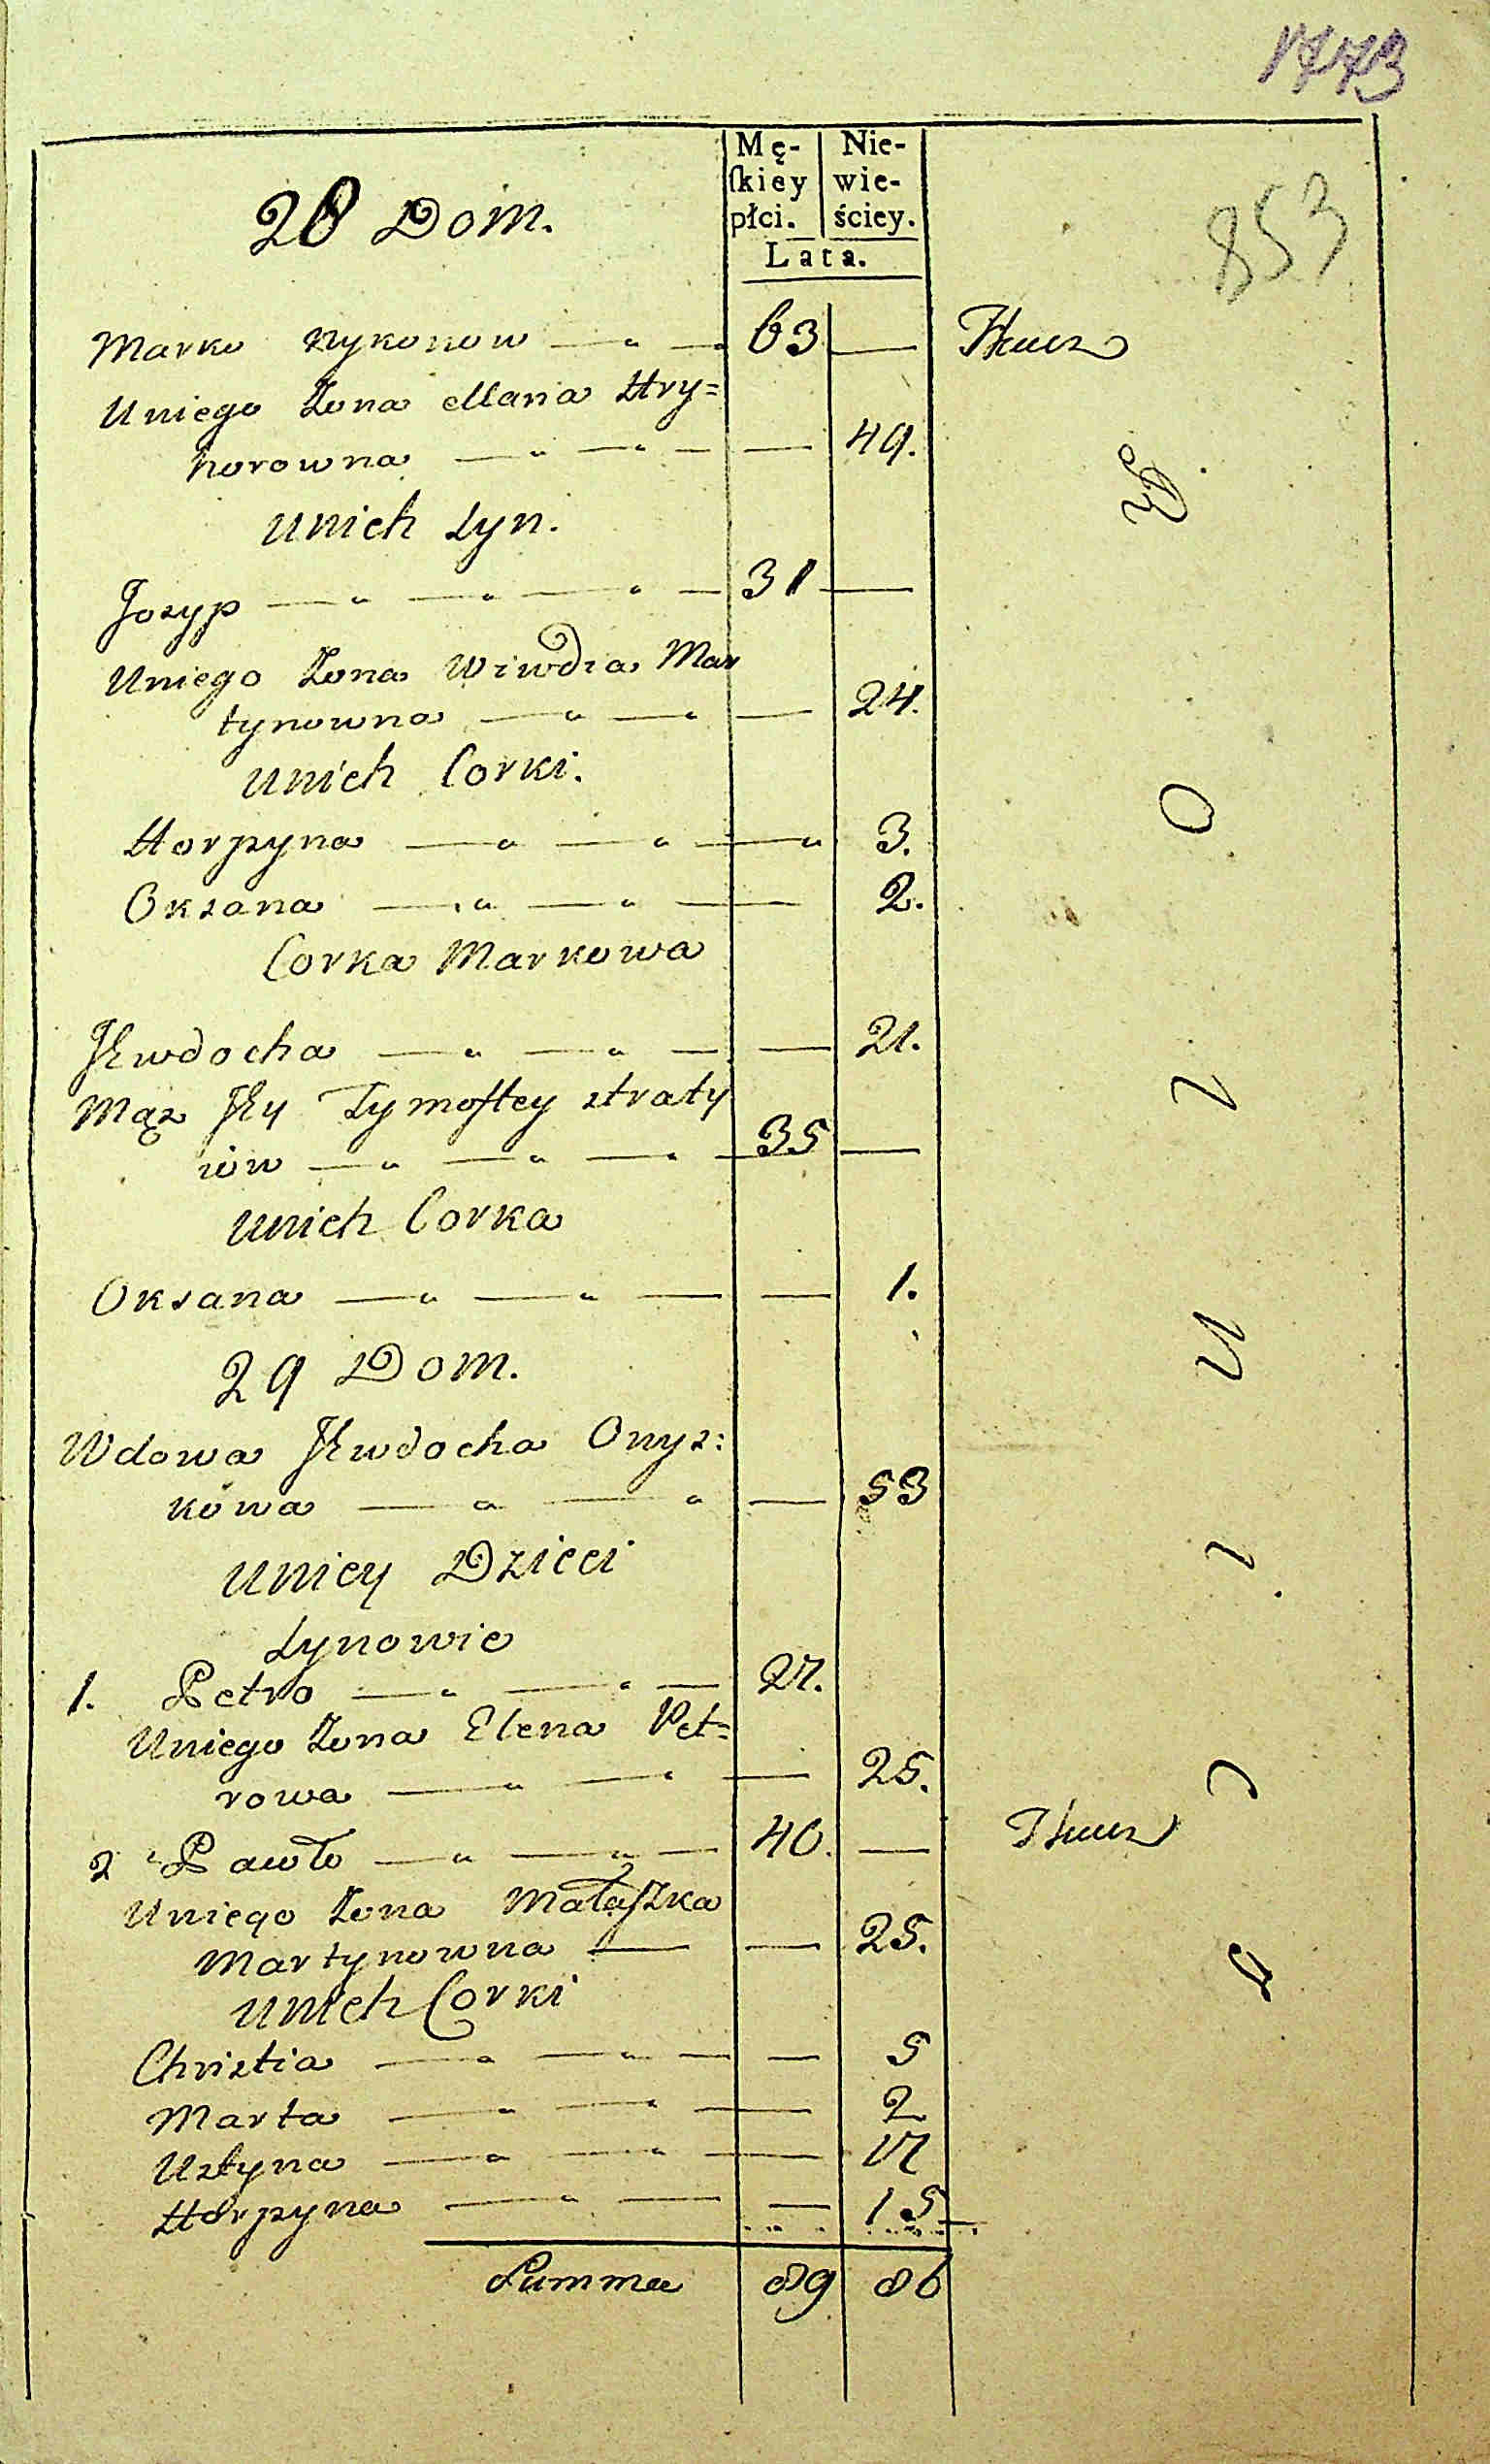 1773
Mę- Nie-
ſkiey wie-
płci. ściey.
Lata.
853
28 Dom.
Marko Nykonow 63 Tkacz
Uniego Zona Maria Hry=
horowna 49.
Unich Syn.
Josyp 31
Uniego Zona Wiwdia Mar
tynowna 24.
Unich Corki.
Horpyna 3.
Oksana 2.
Corka Markowa
Jewdocha 21.
Mąz Jey Tymoftey Straty
iów 35
Unich Corka
Oksana 1.
29 Dom.
Wdowa Jewdocha Onys:
kowa 53
Uniey Dzieci
Synowie
1. Petro 27.
Uniego Zona Elena Pet=
rowa 25.
2 Pawło 40. Tkacz
Uniego Zona Małaſzka
Martynowna 25.
Unich Corki
Christia 5
Marta 2
Ustyna 17
Horpyna 15
Summa 89 86